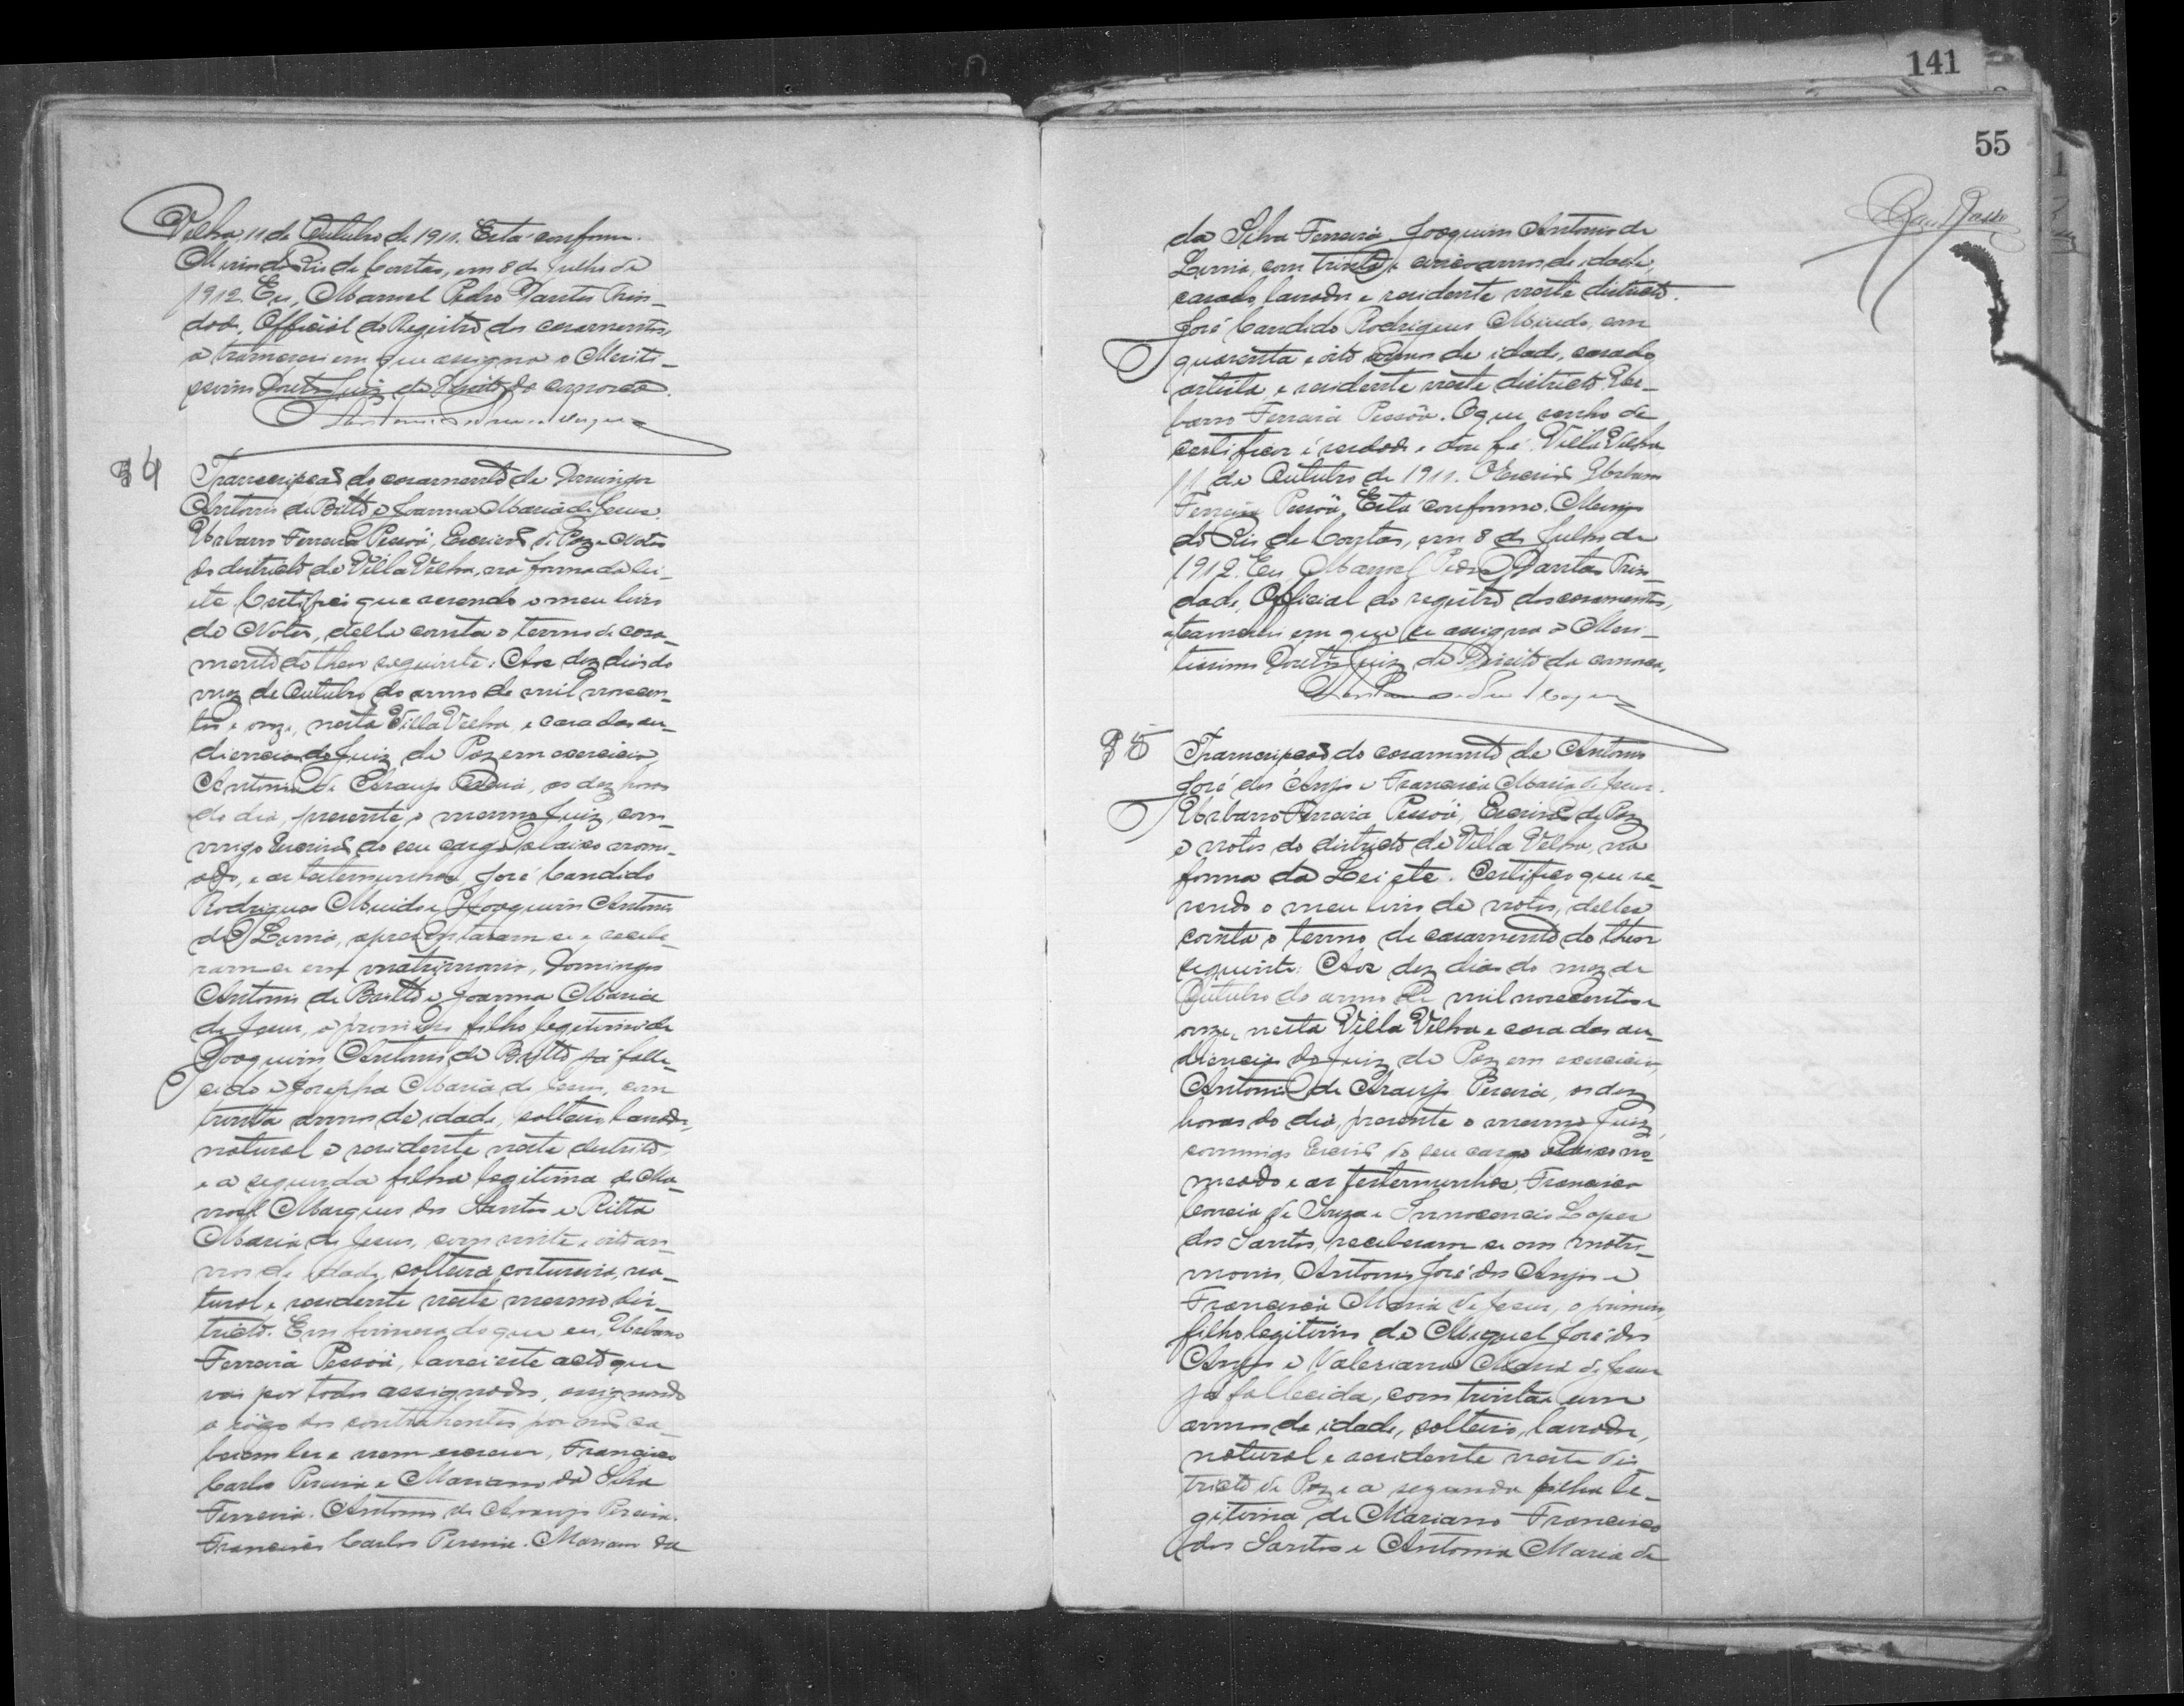 Velha 11 de Outubro de 1911. Está conforme.
Minas do Rio de Contas, em 8 de Julho de
1912. Eu, Manoel Pedro Dantas Trin-
dade, Official do Registro dos casamentos,
a transcrevi em que assigna o Meriti-
ssimo Doutor Juiz de Direito da comarca.
34
Transcripção do casamento de Domingos
Antonio de Britto e Joanna Maria de Jesus.
Urbano Ferreira Pessôa, Escrivão de Paz e Notas
do districto de Villa Velha, na forma da lei
etc. Certifico que revendo o meu livro
de Notas, delle consta o termo de casa-
mento do theor seguinte: Aos dez dias do
mez de Outubro do anno de mil novecen-
tos e onze, nesta Villa Velha, e casa das au-
diencias do Juiz de Paz em exercicio,
Antonio de Araujo Pereira, as dez horas
do dia, presente o mesmo Juiz, com-
migo Escrivão do seu cargo abaixo nome-
ado, e as testemunhas José Candido
Rodrigues Mindo e Joaquim Antonio
de Lima, apresentaram-se e recebe-
ram-se em matrimonio, Domingos
Antonio de Britto e Joanna Maria
de Jesus, o primeiro filho legitimo de
Joaquim Antonio de Britto já falle-
cido e Josepha Maria de Jesus, com
trinta annos de idade, solteiro, lavrador,
natural e residente neste districto,
e a segunda filha legitima de Ma-
noel Marques dos Santos e Ritta
Maria de Jesus, com vinte e oito an-
nos de idade, solteira, costureira, na-
tural e residente neste mesmo dis-
tricto. Em firmesa do que eu, Urbano
Ferreira Pessôa, lavrei este acto que
vai por todos assignados, assignando
a rôgo dos contrahentes, por não sa-
berem ler e nem escrever, Francisco
Carlos Pereira e Mariano da Silva
Ferreira. Antonio de Araujo Pereira.
Francisco Carlos Pereira. Mariano da
141
55
da Silva Ferreira Joaquim Antonio de
Lima, com trinta e cinco annos de idade,
casado, lavrador e residente neste districto.
José Candido Rodrigues Mindo, com
quarenta e oito annos de idade, casado,
artista, e residente neste districto. Ur-
bano Ferreira Pessôa. O que venho de
certificar é verdade e dou fé. Villa Velha
11 de Outubro de 1911. O Escrivão Urbano
Ferreira Pessôa. Está conforme. Minas
do Rio de Contas, em 8 de Julho de
1912. Eu, Manoel Pedro Dantas Trin-
dade, Official do registro dos casamentos,
a transcrevi em que se assigna o Meri-
tissimo Doutor Juiz de Direito da comarca.
35
Transcripção do casamento de Antonio
José dos Anjos e Francisca Maria de Jesus.
Urbano Ferreira Pessôa, Escrivão de Paz
e notas do districto de Villa Velha, na
forma da Lei etc. Certifico que re-
vendo o meu livro de notas, delles
consta o termo de casamento do theor
seguinte: Aos dez dias do mez de
Outubro do anno de mil novecentos e
onze, nesta Villa Velha e casa das au-
diencias do Juiz de Paz em exercicio
Antonio de Araujo Pereira, as dez
horas do dia, presente o mesmo Juiz,
commigo Escrivão do seu cargo abaixo no-
meado e as testemunhas, Francisco
Correia de Souza e Innocencio Lopes
dos Santos, receberam-se em matri-
monio, Antonio José dos Anjos e
Francisca Maria de Jesus, o primeiro,
filho legitimo de Miguel José dos
Anjos e Valeriana Maria de Jesus
já fallecida, com trinta e um
annos de idade, solteiro, lavrador,
natural e residente neste dis
tricto de Paz, e a segunda filha le-
gitima de Mariano Francisco
dos Santos e Antonia Maria de